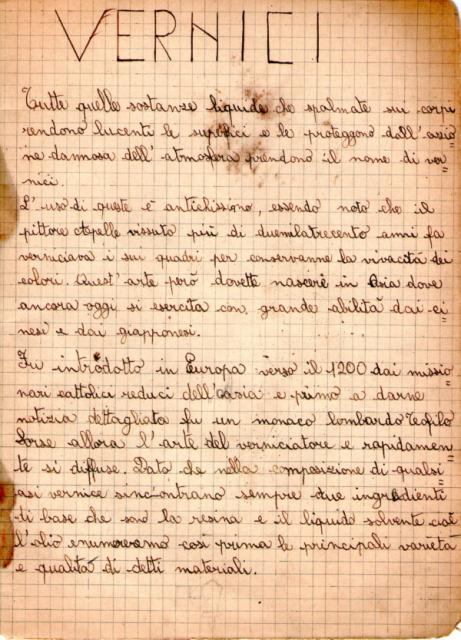 VERNICI
Tutte quelle sostanze liquide che spalmate sui corpi
rendono lucenti le superfici e le proteggono dall'azio=
ne dannosa dell'atmosfera prendono il nome di ver=
nici.
L'uso di queste è antichissimo, essendo noto che il
pittore Apelle vissuto più di duemilatrecento anni fa
verniciava i sui quadri per conservanne la vivacità dei
colori. Quest'arte però dovette nascere in Asia dove
ancora oggi si esercita con grande abilità dai ci=
nesi e dai giapponesi.
Fu introdotto in Europa verso il 1200 dai missio=
nari cattolici reduci dell'asia e primo a darne
notizia dettagliata fu un monaco lombardo Teofilo
Sorse allora l'arte del verniciatore e rapidamen=
te si diffuse. Dato che nella composizione di qualsi=
asi vernice sincontrano sempre due ingredienti
di base che sono la resina e il liquido solvente cioè
l'olio enumereremo così prima le principali varietà
e qualità di detti materiali.